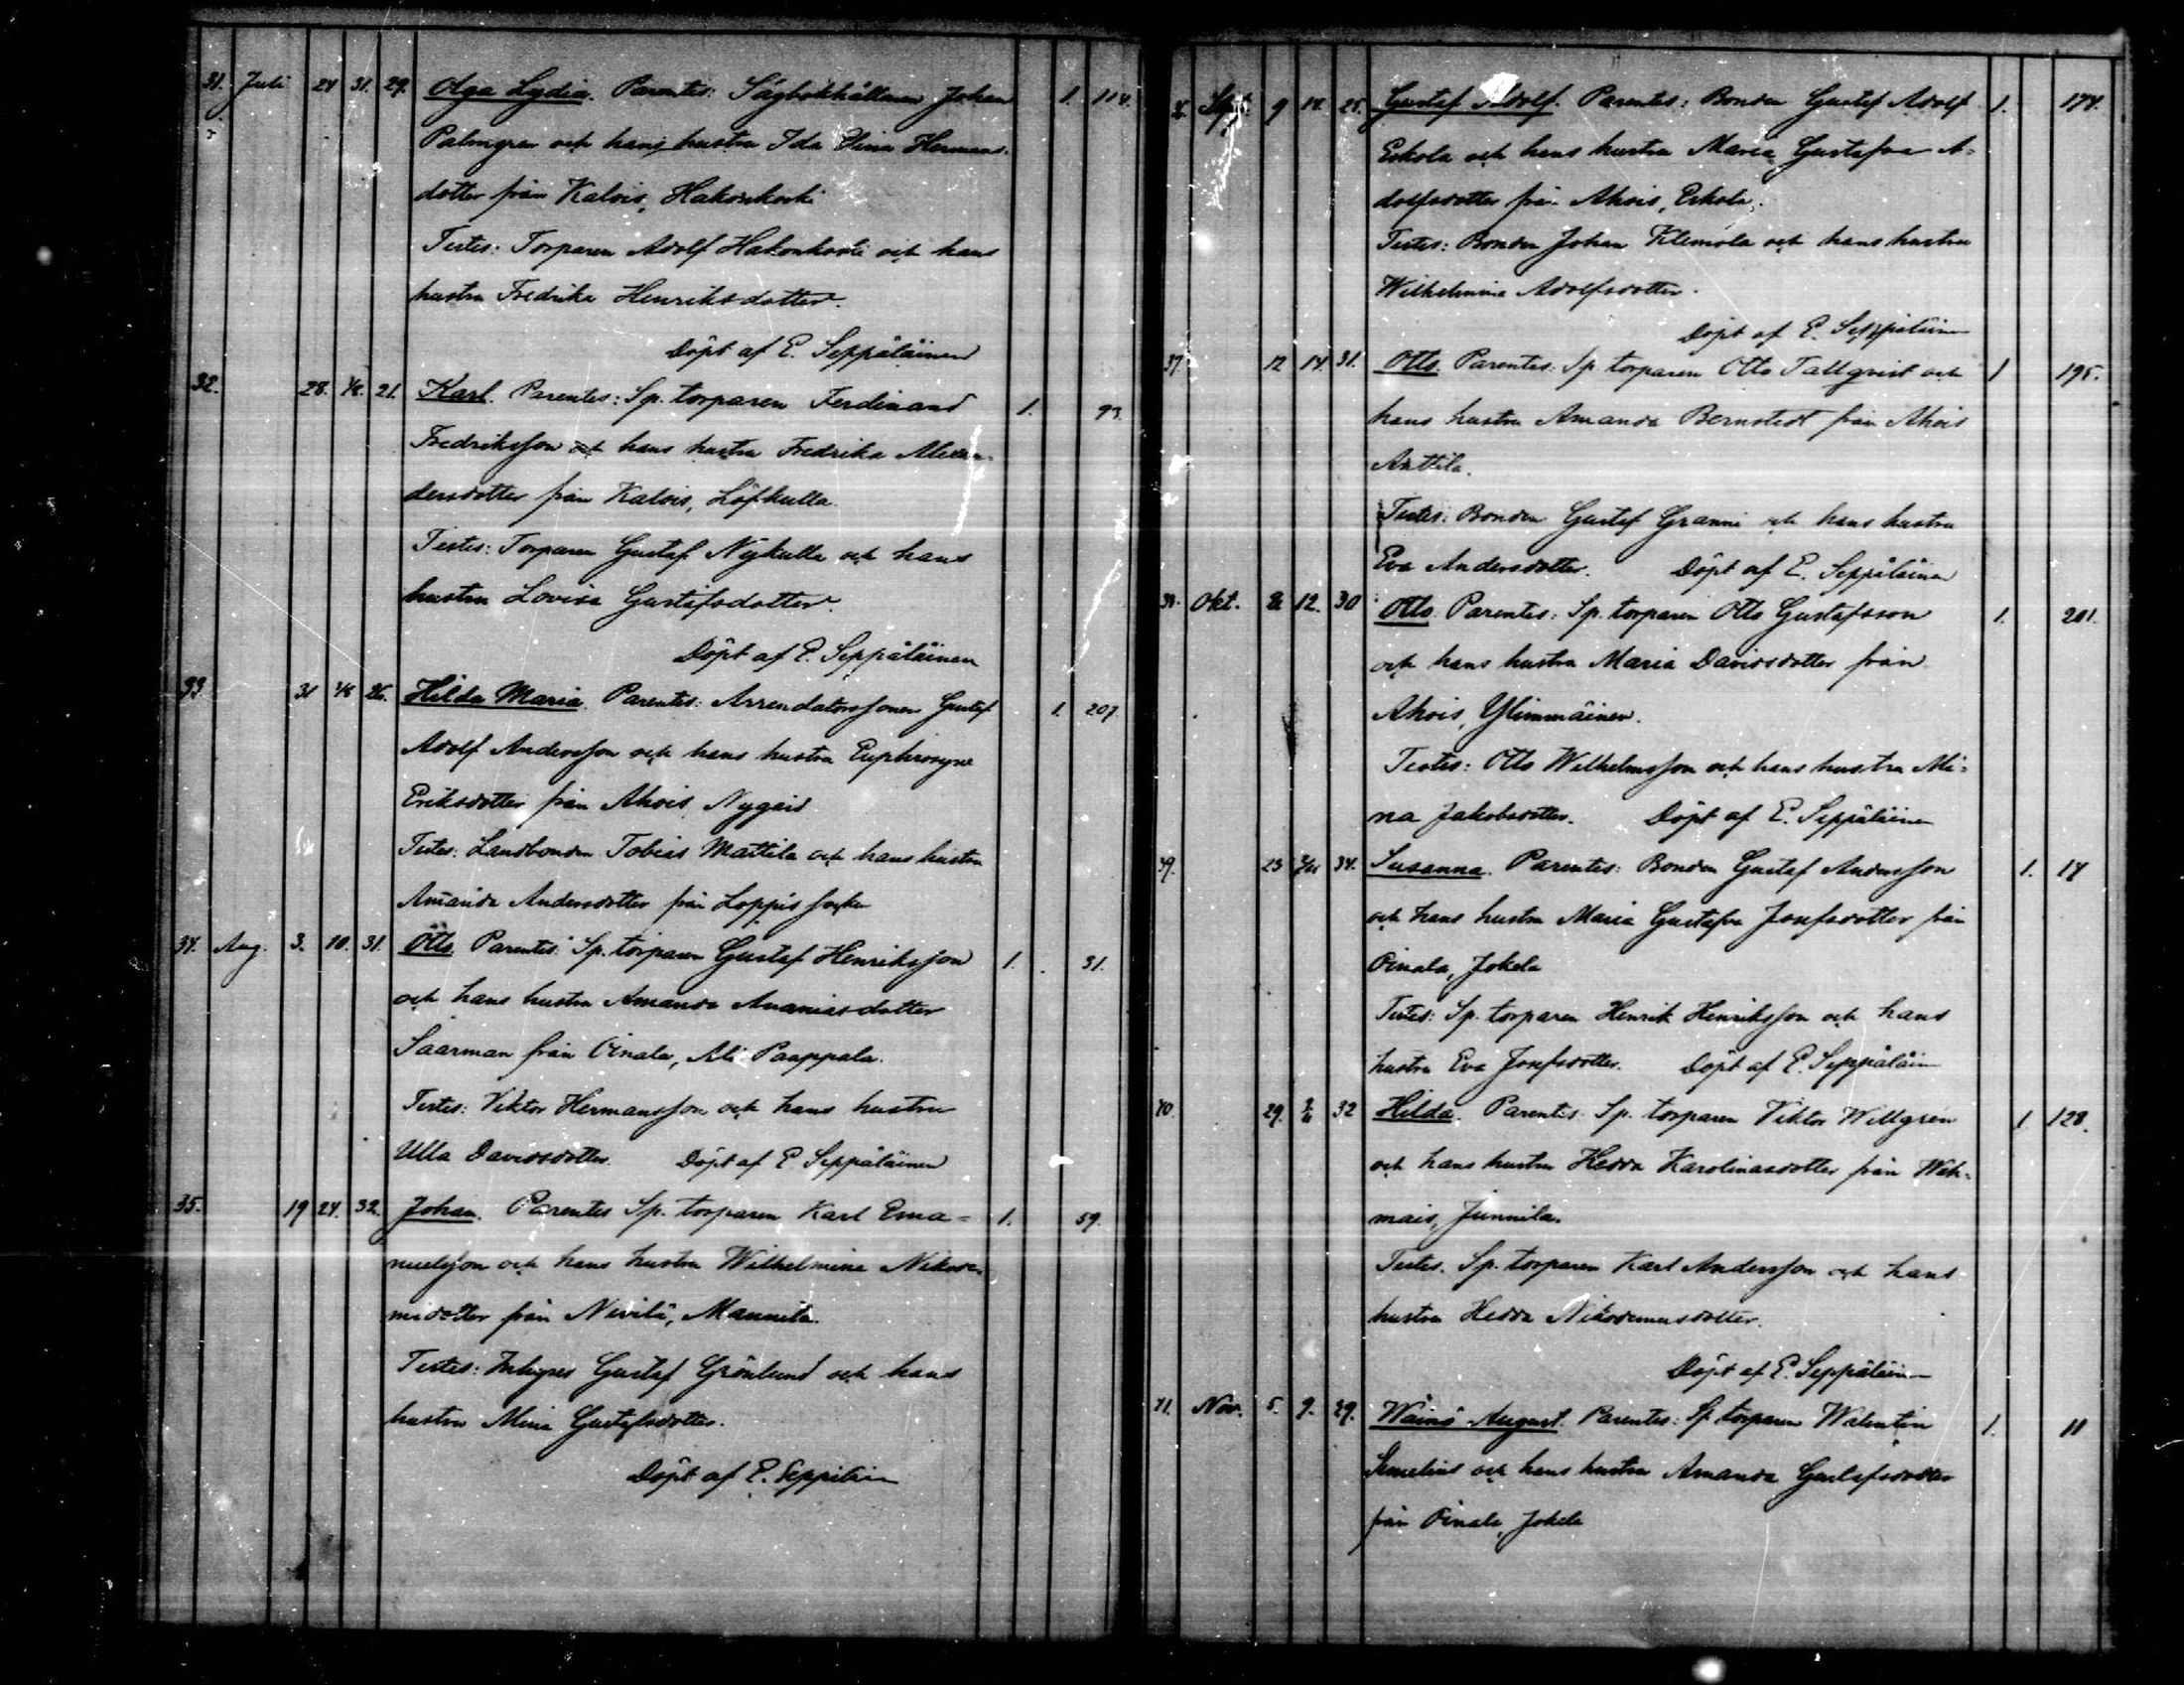 31. Juli 24 31. 29. Olga Lydia. Parentes: Sågbokhållaren Johan 1. 114.
Palmgren och hans hustru Ida Hermans-
dotter från Kalois, Hakonkoski
Testes: Torparen Adolf Hakonkoski och hans
hustru Fredrika Henriksdotter.
Döpt af E. Seppäläinen
32. 28. 1/8. 21. Karl. Parentes: Sp. torparen Ferdinand 1. 93.
Fredriksson och hans hustru Fredrika Alexan-
dersdotter från Kalois, Löfkulla
Testes: Torparen Gustaf Nykulla och hans
hustru Lovisa Gustafsdotter.
Döpt af E. Seppäläinen
33 31 1/8 26. Hilda Maria. Parentes: Arrendatorssonen Gustaf 1. 207
Adolf Andersson och hans hustru Euphrosyne
Eriksdotter från Ahois Nygård
Testes: Landbonden Tobias Mattila och hans hustru
Amanda Andersdotter från Loppis socken
34. Aug. 3. 10. 31. Otto. Parentes: Sp. torparen Gustaf Henriksson 1. 31.
och hans hustru Amanda Ananiasdotter
Saarman från Oinala, Ali Paappala.
Testes: Viktor Hermansson och hans hustru
Ulla Davidsdotter. Döpt af E Seppäläinen
35. 19 24. 32. Johan. Parentes Sp. torparen Karl Ema= 1. 59.
nuelsson och hans hustru Wilhelmina Nikode-
midotter från Nivilä, Mannila.
Testes: Inhyses Gustaf Grönlund och hans
hustru Mina Gustafsdotter.
Döpt af E. Seppäläin
Sept. 9 14. 25. Gustaf Adolf. Parentes: Bonden Gustaf Adolf 1. 174.
Eskola och hans hustru Maria Gustafva A-
dolfsdotter från Ahois, Eskola.
Testes: Bonden Johan Klemola och hans hustru
Wilhelmina Adolfsdotter.
Döpt af E. Seppäläinen
37. 12 14 31. Otto. Parentes: Sp. torparen Otto Tallqvist och 1 195.
hans hustru Amanda Bernstedt från Ahois
Anttila.
Testes: Bonden Gustaf Granni och hans hustru
Eva Andersdotter. Döpt af E. Seppäläinen
38. Okt. 12. 30 Otto. Parentes: Sp. torparen Otto Gustafsson 1. 201.
och hans hustru Maria Davidsdotter från
Ahois, Ylimmäinen.
Testes: Otto Wilhelmsson och hans hustru Mi-
na Jakobsdotter. Döpt af E. Seppäläinen
39. 23 2/11 34. Susanna. Parentes: Bonden Gustaf Andersson 1. 14
och hans hustru Maria Gustafva Josefsdotter från
Oinala, Jokela
Testes: Sp. torparen Henrik Henriksson och hans
hustru Eva Josefsdotter. Döpt af E. Seppäläin
40. 29. 2/11 32 Hilda. Parentes: Sp. torparen Viktor Willgren 1. 128.
och hans hustru Hedda Karolinasdotter från Wäh-
mais, Junnila.
Testes. Sp. torparen Karl Andersson och hans
hustru Hedda Nikodemusdotter.
Döpt af E. Seppäläin
41. Nov. 5. 9. 29. Wäinö August. Parentes: Sp. torparen Walentin 1. 11
och hans hustru Amanda Gustafsdotter
från Oinala, Jokela